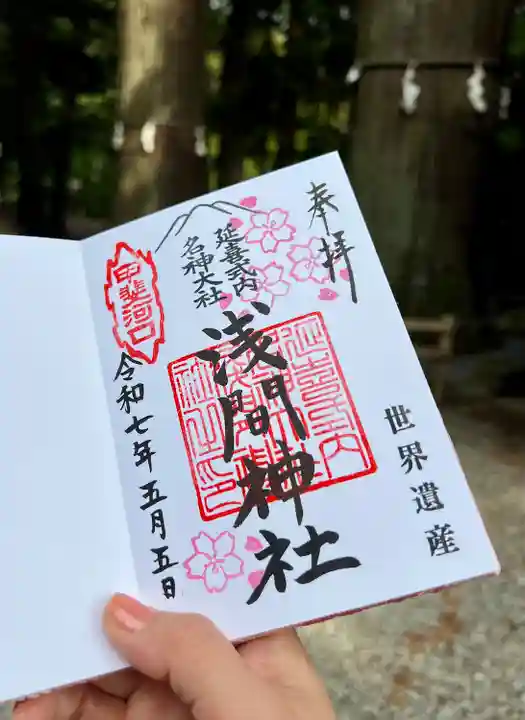 奉拝
世界遺産
延喜式内
名神大社
浅間神社
甲斐河口
令和七年五月五日